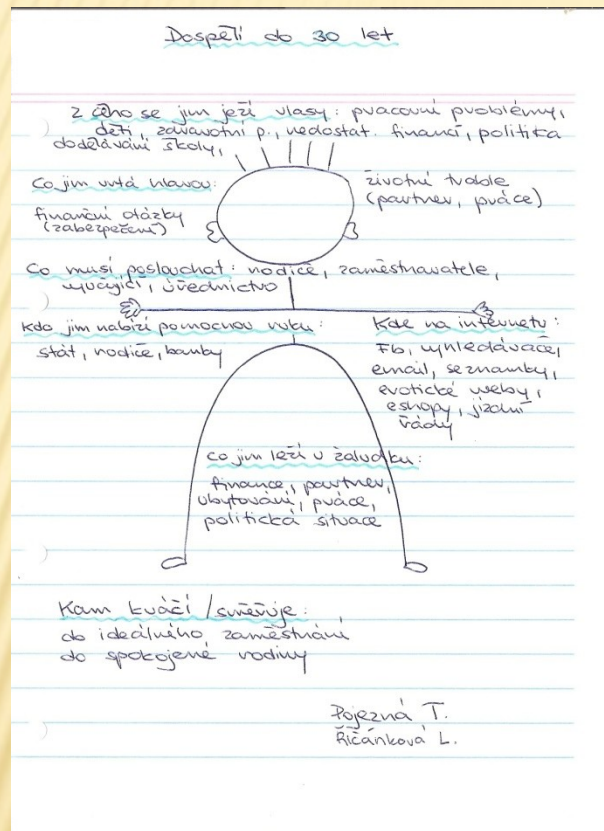 Dospělí do 30 let
Z čeho se jim ježí vlasy: pracovní problémy,
děti, zdravotní p., nedostat. financí, politika
dodělávání školy,
Co jim vrtá hlavou:
finanční otázky
(zabezpečení)
životní trable
(partner, práce)
Co musí poslouchat: rodiče, zaměstnavatele,
vyučující, úřednictvo
Kdo jim nabízí pomocnou ruku:
stát, rodiče, banky
Kde na internetu:
Fb, vyhledávače,
email, seznamky,
erotické weby,
eshopy, jízdní
řády
Co jim leží v žaludku:
finance, partner,
ubytování, práce,
politická situace
Kam kráčí / směřuje:
do ideálního zaměstnání
do spokojené rodiny
Pojezná T.
Řičánková L.